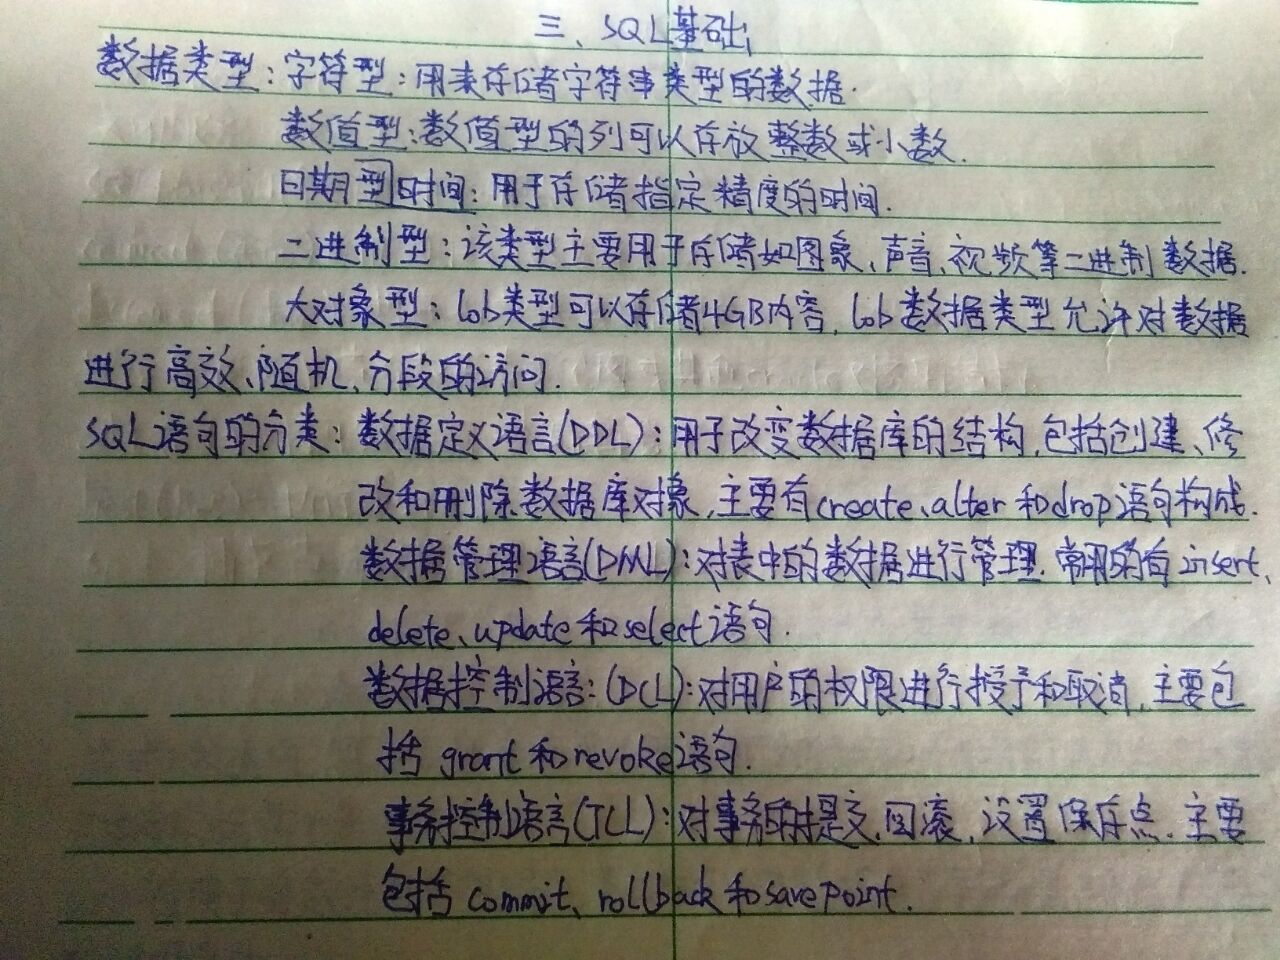 三、SQL基础
数据类型：字符型：用来存储字符串类型的数据.
数值型：数值型的列可以存放整数或小数.
日期型时间：用于存储指定精度的时间.
二进制型：该类型主要用于存储如图象、声音、视频等二进制数据.
大对象型：lob类型可以存储4GB内容，lob数据类型允许对数据
进行高效、随机、分段的访问.
SQL语句的分类：数据定义语言(DDL)：用于改变数据库的结构，包括创建、修
改和删除数据库对象，主要有create、alter和drop语句构成.
数据管理语言(DML)：对表中的数据进行管理.常用的有insert、
delete、update和select语句.
数据控制语言：(DCL)：对用户的权限进行授予和取消，主要包
括 grant和revoke语句.
事务控制语言(TCL)：对事务的提交、回滚，设置保存点.主要
包括 commit、rollback和savepoint.